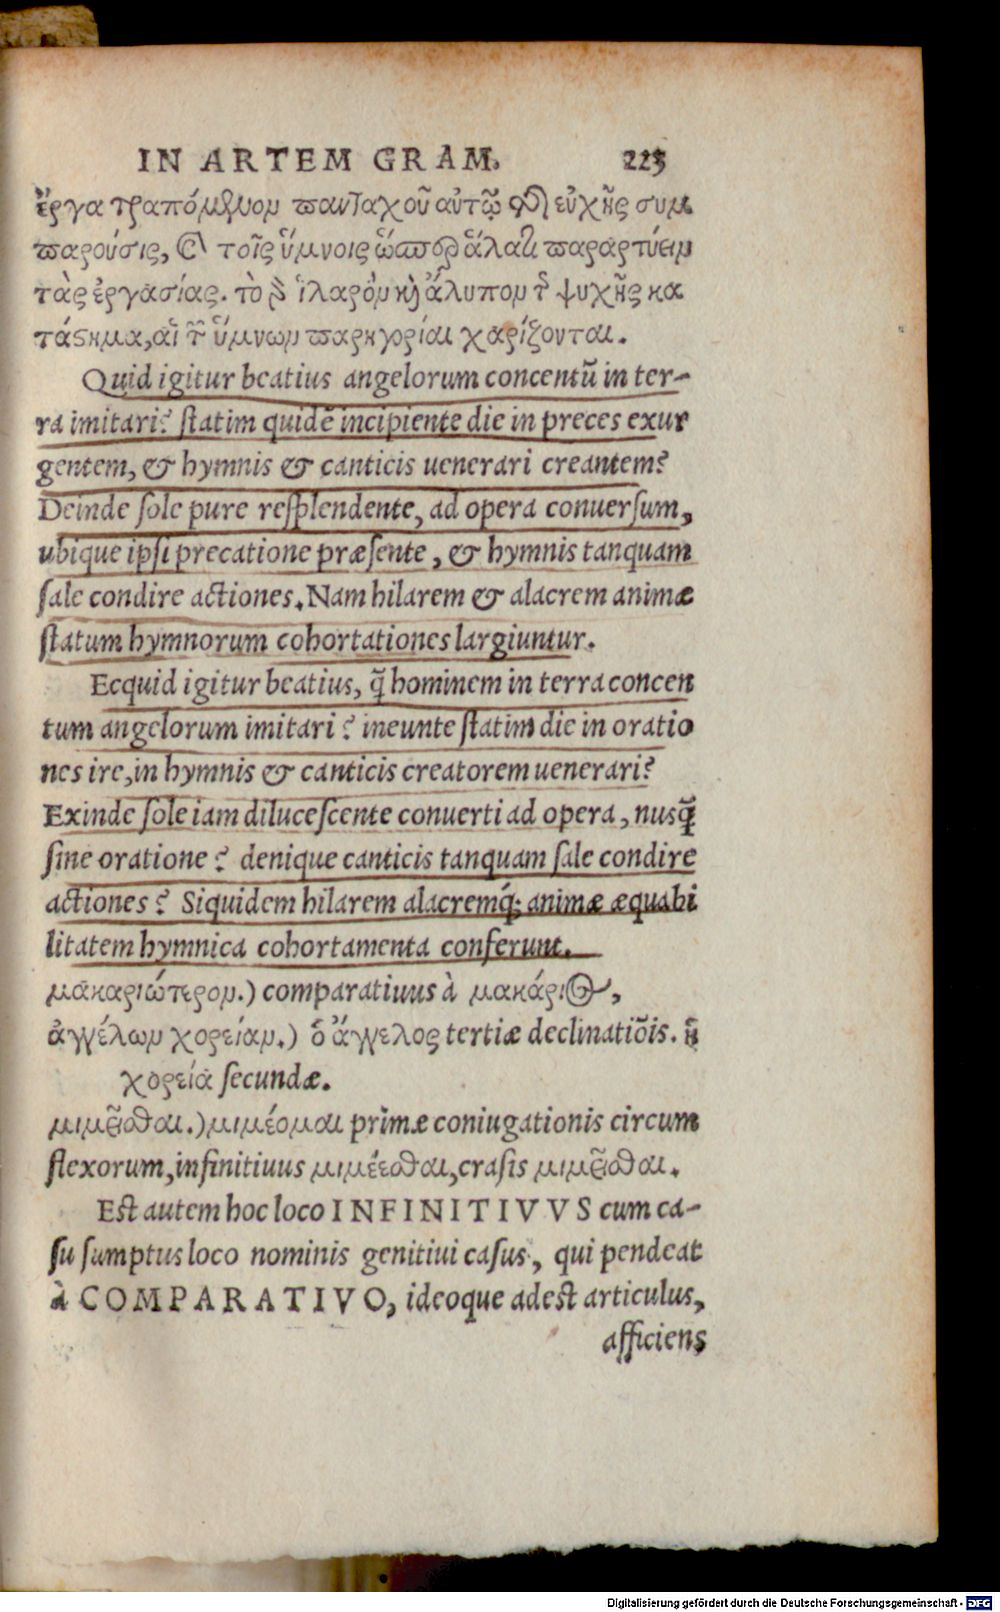 IN ARTEM GRAM. 223
ἔργα τραπόμενον πανταχοῦ αὐτῷ τῆς εὐχῆς συμ
παρούσης, καὶ τοῖς ὕμνοις ὥσπερ ἅλατι παραρτύειν
τὰς ἐργασίας. τὸ γὰρ ἱλαρὸν καὶ ἄλυπον τῆς ψυχῆς κα
τάστημα, αἱ τῶν ὕμνων παρηγορίαι χαρίζονται.
Quid igitur beatius angelorum concentũ in ter-
ra imitari? statim quidẽ incipiente die in preces exur
gentem, & hymnis & canticis uenerari creantem?
Deinde sole pure resplendente, ad opera conuersum,
ubique ipsi precatione præsente, & hymnis tanquam
sale condire actiones. Nam hilarem & alacrem animæ
statum hymnorum cohortationes largiuntur.
Ecquid igitur beatius, q̃ hominem in terra concen
tum angelorum imitari? ineunte statim die in oratio
nes ire, in hymnis & canticis creatorem uenerari?
Exinde sole iam dilucescente conuerti ad opera, nusq̃
sine oratione? denique canticis tanquam sale condire
actiones? Siquidem hilarem alacremq́; animæ æquabi
litatem hymnica cohortamenta conferunt.
μακαριώτερον.) comparatiuus à μακάριος,
ἀγγέλων χορείαν.) ὁ ἄγγελος tertiæ declinatiõis. ἡ
χορεία secundæ.
μιμεῖσθαι.) μιμέομαι primæ coniugationis circum
flexorum, infinitiuus μιμέεσθαι, crasis μιμεῖσθαι.
Est autem hoc loco INFINITIVVS cum ca-
su sumptus loco nominis genitiui casus, qui pendeat
à COMPARATIVO, ideoque adest articulus,
afficiens
Digitalisierung gefördert durch die Deutsche Forschungsgemeinschaft - DFG